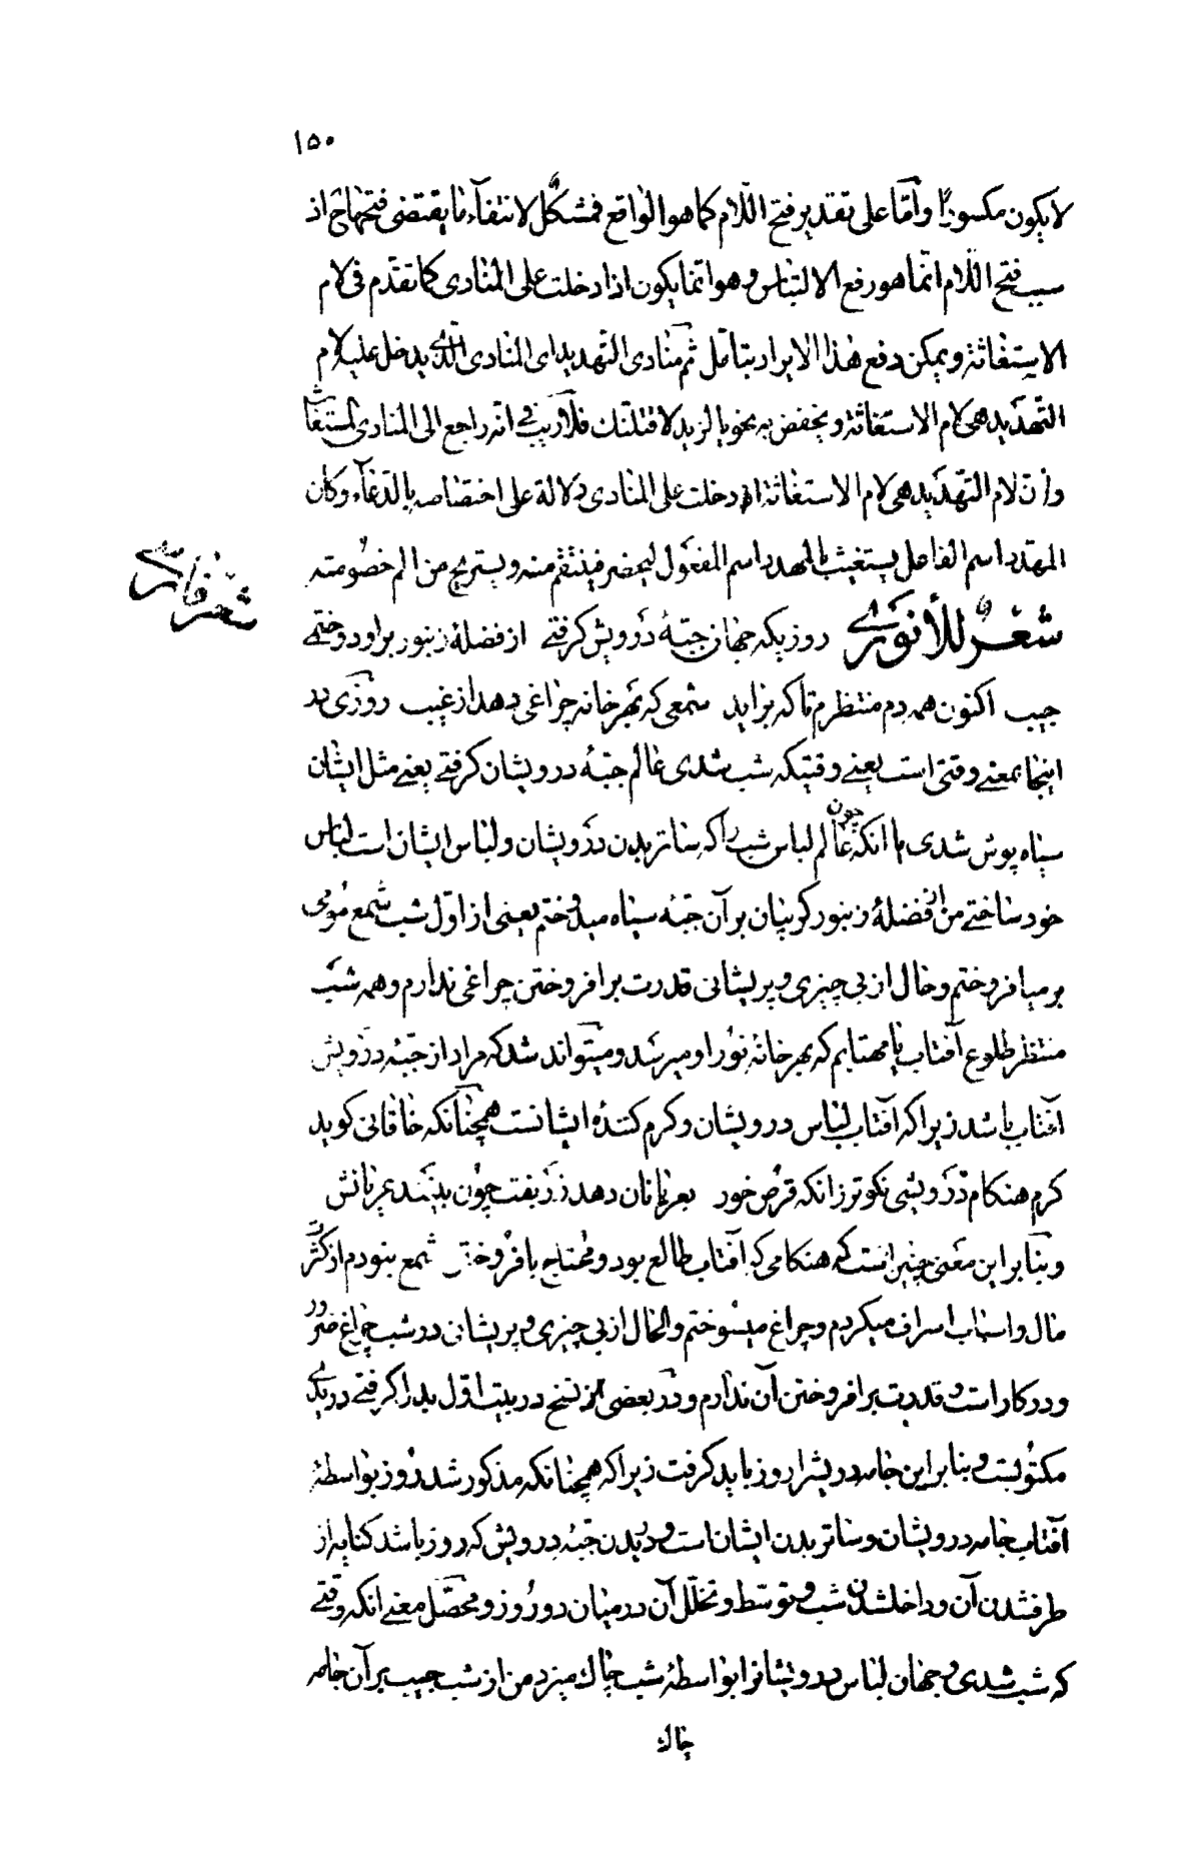 ١٥٠
لا يكون مكسورًا وأمّا على تقدير فتح اللّام كما هو الواقع فمشكل لانتفاء ما يقتضى فتحها ح اذ
سبب فتح اللّام انّما هو رفع الالتباس وهو انّما يكون اذا دخلت على المنادى كما تقدّم فى لام
الاستغاثة ويمكن دفع هذا الايراد بتأمّل ثمّ منادى التهديد اى المنادى الّذى يدخل عليه لام
التهديد هى لام الاستغاثة ويخفض به نحو يا لزيد لاقتلنك فلا ريب فى انّه راجع الى المنادى المستغاث
وانّ لام التهديد هى لام الاستغاثة اذ دخلت على المنادى دلالة على اختصاصه بالدّعاء وكان
المهدّد اسم الفاعل يستغيث بالمهدد اسم المفعول ليحضر فينتقم منه ويستريح من الم خصومته
شعر فارسى
شعرٌ للأنورى روزیکه جهان جبّهٔ درویش کرفتى از فضلهٔ زنبور بر او دوختى
جیب اکنون همه دم منتظرم تا که بر اید شمعى که بهر خانه چراغى دهد از غیب روزى در
اینجا بمعنى وقتى است یعنى وقتیکه شب شدى عالم جبّهٔ درویشان کرفتى یعنى مثل ایشان
سیاه پوش شدى با انکه چون عالم لباس شب را که ساتر بدن درویشان و لباس ایشان است لباس
خود ساختى من از فضلهٔ زنبور کریبان بر آن جبّهٔ سیاه میدوختم یعنى از اوّل شب شمع مومى
بر میافروختم و حال از بى چیزى و پریشانى قدرت بر افروختن چراغى ندارم و همه شب
منتظر طلوع آفتاب یا مهتابم که بهر خانهٔ نور او میرسد و میتواند شد که مراد از جبّهٔ درویش
آفتاب باشد زیرا که آفتاب لباس درویشان و کرم کنندهٔ ایشانست همچنانکه خاقانى کوید
کرم هنکام درویشى نکوتر زانکه قرص خور بعریانان دهد زربفت چون بینند عریانش
و بنا بر این معنى چنین است که هنکامى که آفتاب طالع بود و محتاج بافروختن شمع نبودم از کثرت
مال و اسباب اسراف میکردم و چراغ میسوختم و الحال از بى چیزى و پریشانى در شب چراغ ضرور
و در کار است و قدرت بر افروختن آن ندارم و در بعضى از نسخ در بیت اوّل بدل کرفتى دریدى
مکتوبست و بنا بر این جامه درویش را روز باید کرفت زیرا که همچنانکه مذکور شد روز بواسطهٔ
آفتاب جامه درویشان و ساتر بدن ایشان است و دریدن جبّهٔ درویش که روز باشد کنایه از
طرفشدن آن و داخلشدن شب و توسّط و تخلّل آن در میان دو روز و محصّل معنى انکه وقتى
که شب شدى و جهان لباس درویشانرا بواسطهٔ شب چاک میزد من از شب جیب بر آن جامه
چاک